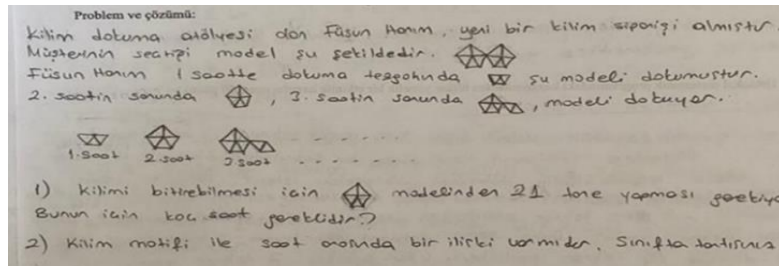 Problem ve çözümü:
Kilim dokuma atölyesi olan Füsun Hanım, yeni bir kilim siparişi almıştır.
Müşterinin seçtiği model şu şekildedir.
Füsun Hanım 1 saatte dokuma tezgahında şu modeli dokumuştur.
2. saatin sonunda , 3. saatin sonunda , modeli dokuyor.
1. saat 2. saat 3. saat
1) Kilimi bitirebilmesi için modelinden 21 tane yapması gerekiyo
Bunun için kaç saat gereklidir?
2) Kilim motifi ile saat arasında bir ilişki varmıdır. Sınıfta tartışınız